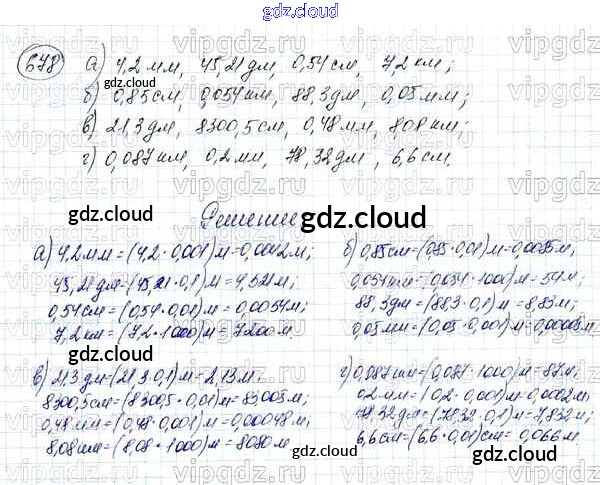 gdz.cloud
678 а) 4,2 мм, 45,21 дм, 0,54 см, 7,2 км;
б) 0,85 см, 0,054 км, 88,3 дм, 0,05 мм;
в) 21,3 дм, 8300,5 см, 0,48 мм, 8,08 км;
г) 0,087 км, 0,2 мм, 78,32 дм, 6,6 см.
Решение
gdz.cloud
gdz.cloud
а) 4,2 мм = (4,2 · 0,001) м = 0,0042 м;
45,21 дм = (45,21 · 0,1) м = 4,521 м;
0,54 см = (0,54 · 0,01) м = 0,0054 м;
7,2 км = (7,2 · 1000) м = 7200 м.
б) 0,85 см = (0,85 · 0,01) м = 0,0085 м;
0,054 км = (0,054 · 1000) м = 54 м;
88,3 дм = (88,3 · 0,1) м = 8,83 м;
0,05 мм = (0,05 · 0,001) м = 0,00005 м.
gdz.cloud
gdz.cloud
в) 21,3 дм = (21,3 · 0,1) м = 2,13 м.
8300,5 см = (8300,5 · 0,01) м = 83,005 м;
0,48 мм = (0,48 · 0,001) м = 0,00048 м;
8,08 км = (8,08 · 1000) м = 8080 м
г) 0,087 км = (0,087 · 1000) м = 87 м;
0,2 мм = (0,2 · 0,001) м = 0,0002 м;
78,32 дм = (78,32 · 0,1) м = 7,832 м;
6,6 см = (6,6 · 0,01) см = 0,066 м.
gdz.cloud
gdz.cloud